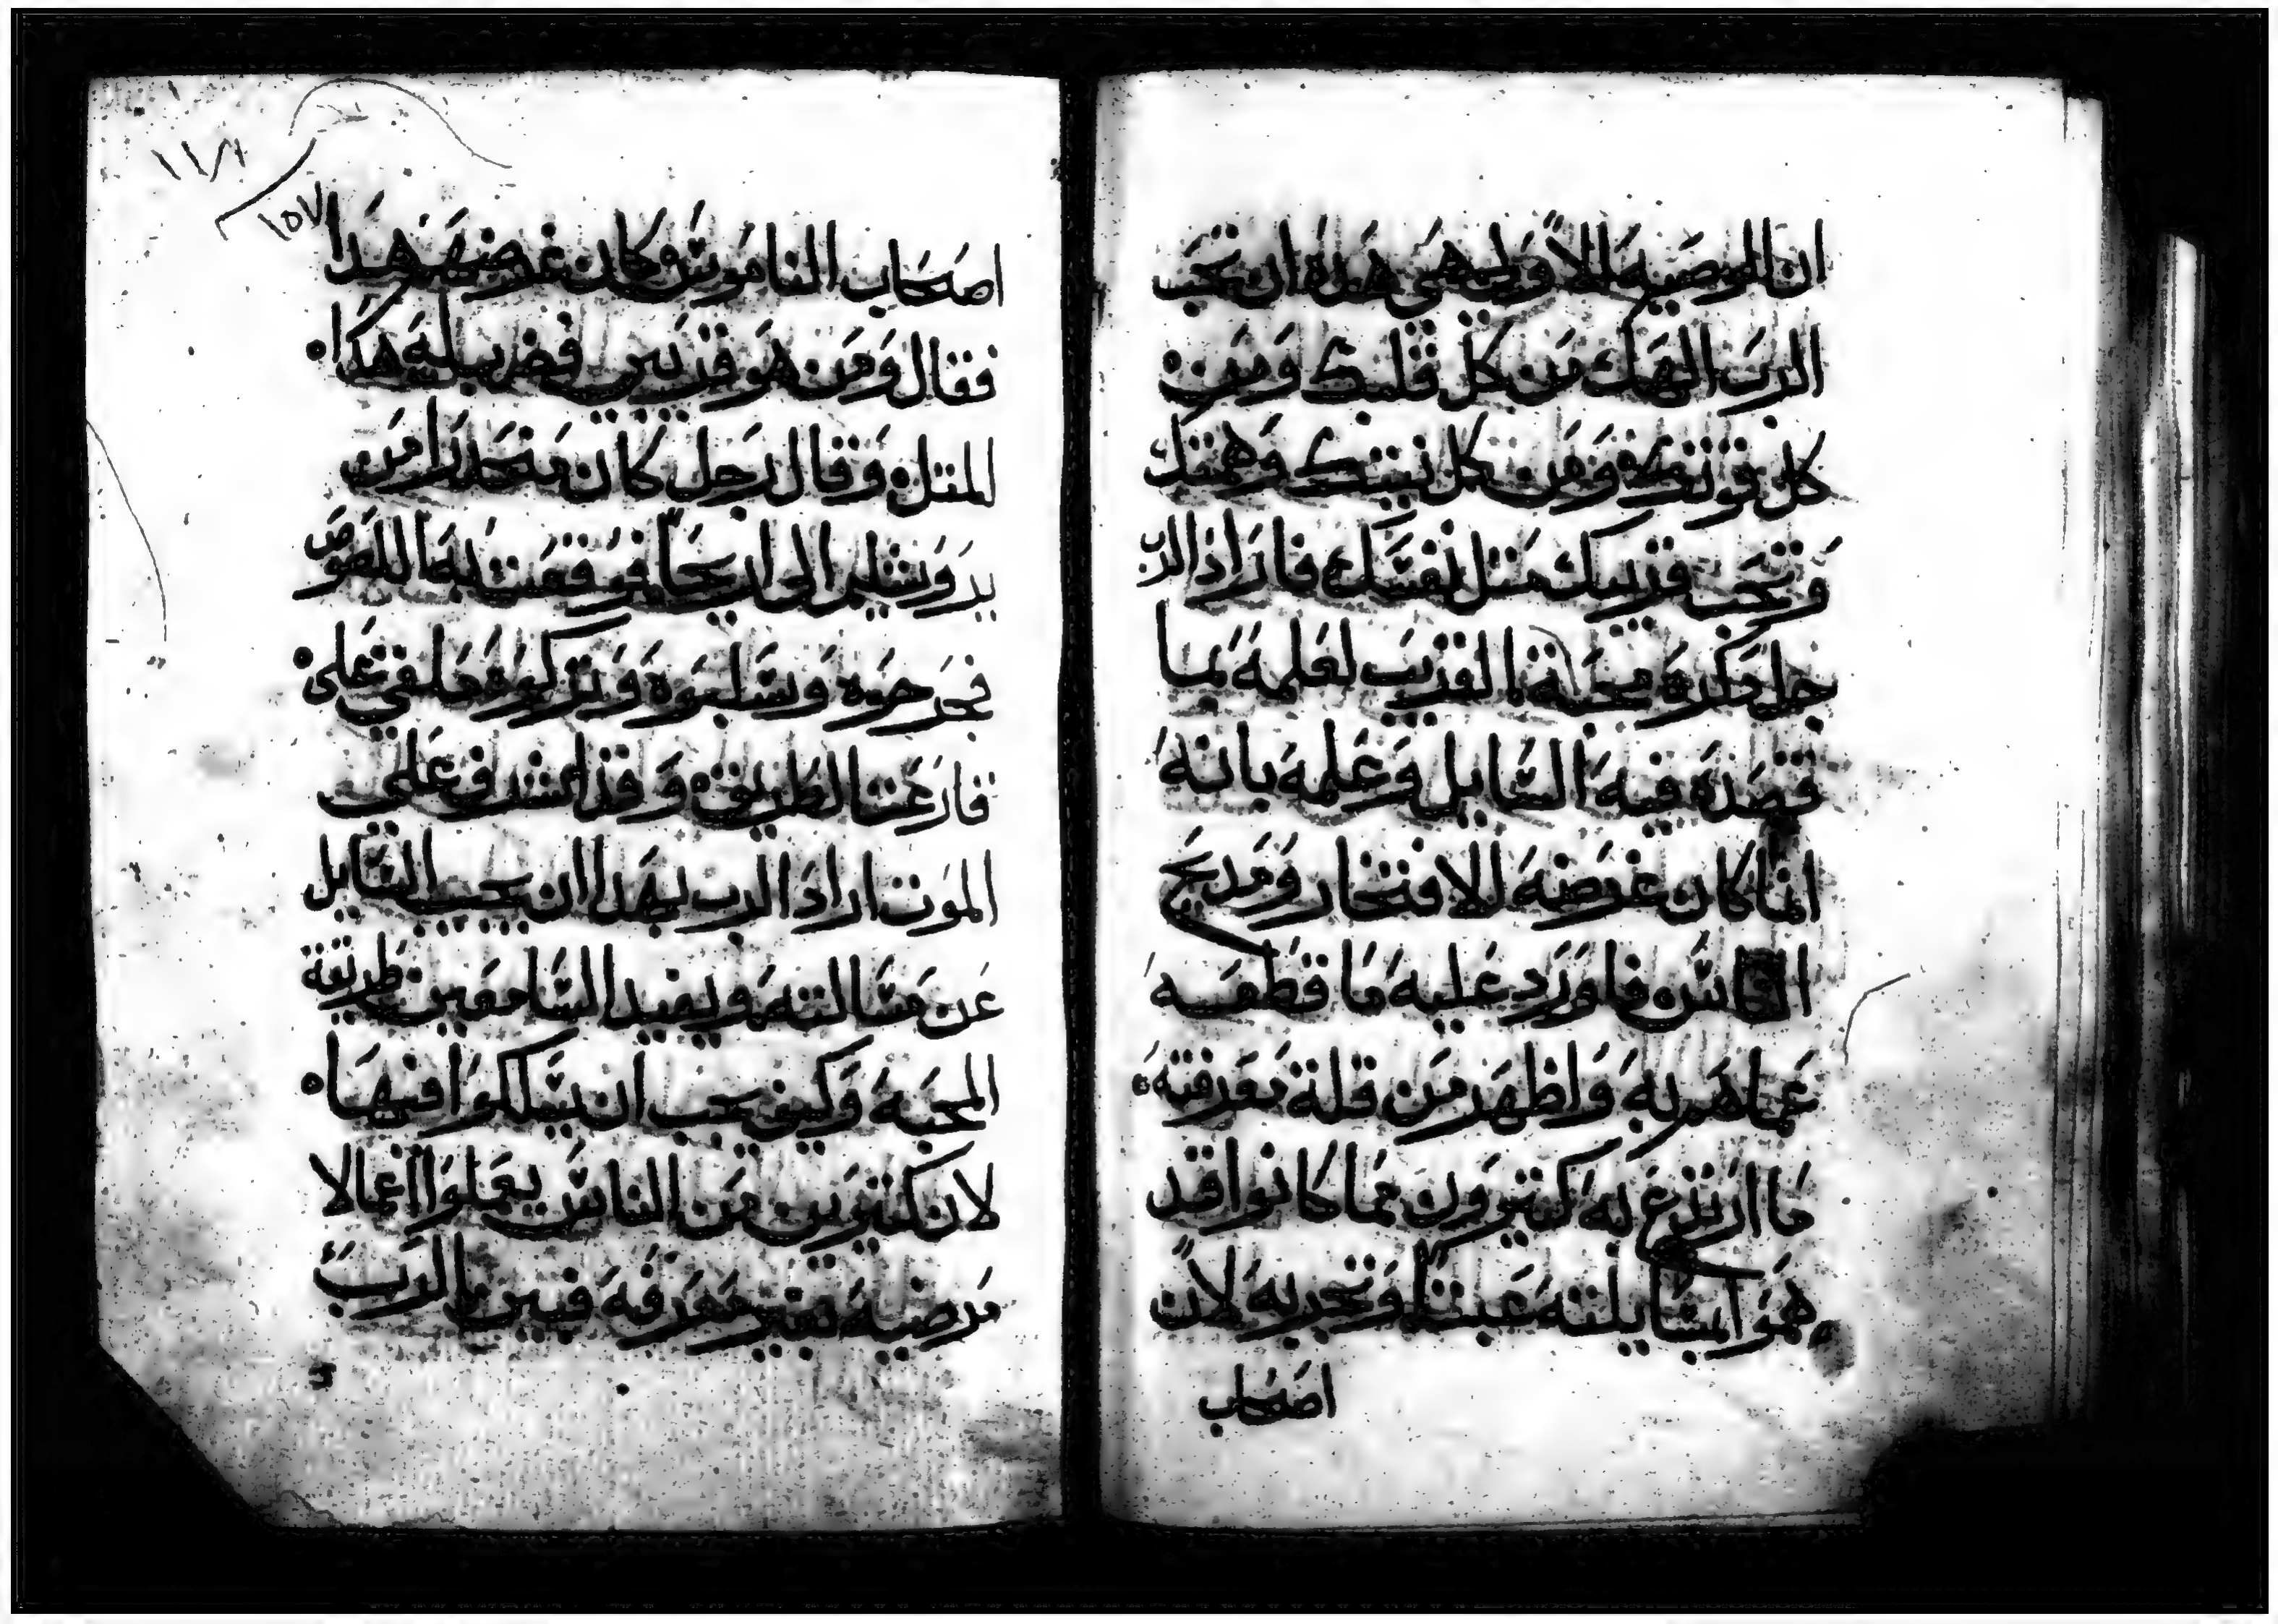 ان الوصيه الاولى هى هذه ان تحب
الرب الهك من كل قلبك ومن
كل قوتك ومن كل نيتك وهمتك
وتحب قريبك مثل نفسك فاراد الرب
جل ذكره محبة القريب لعلمه بما
قصده فيه السايل وعلمه بانه
انما كان غرضه الافتخار ومديح
الناس فاورد عليه ما قطعه
عما هو به واظهر من قلة معرفته
ما ارتدع به كثيرون مما كانوا قد
هموا بمسايلته عبثا وتجربه لان
اصحاب
١١٨
١٥٧
اصحاب الناموس كان غرضهم هذا
فقال ومن هو قريبى فضرب له هذا
المثل وقال رجل كان منحدرا من
يروشليم الى اريحا فوقعت به اللصوص
فجرحوه وسلبوه وتركوه ملقى على
قارعة الطريق وقد اشرف على
الموت اراد الرب بهذا ان يجيب السايل
عن مسالته ويفيد السامعين طريقة
المحبه وكيف يجب ان يسلكوا فيها
لان كثيرين من الناس يعملوا اعمالا
مرضيه بغير معرفه فبين الرب